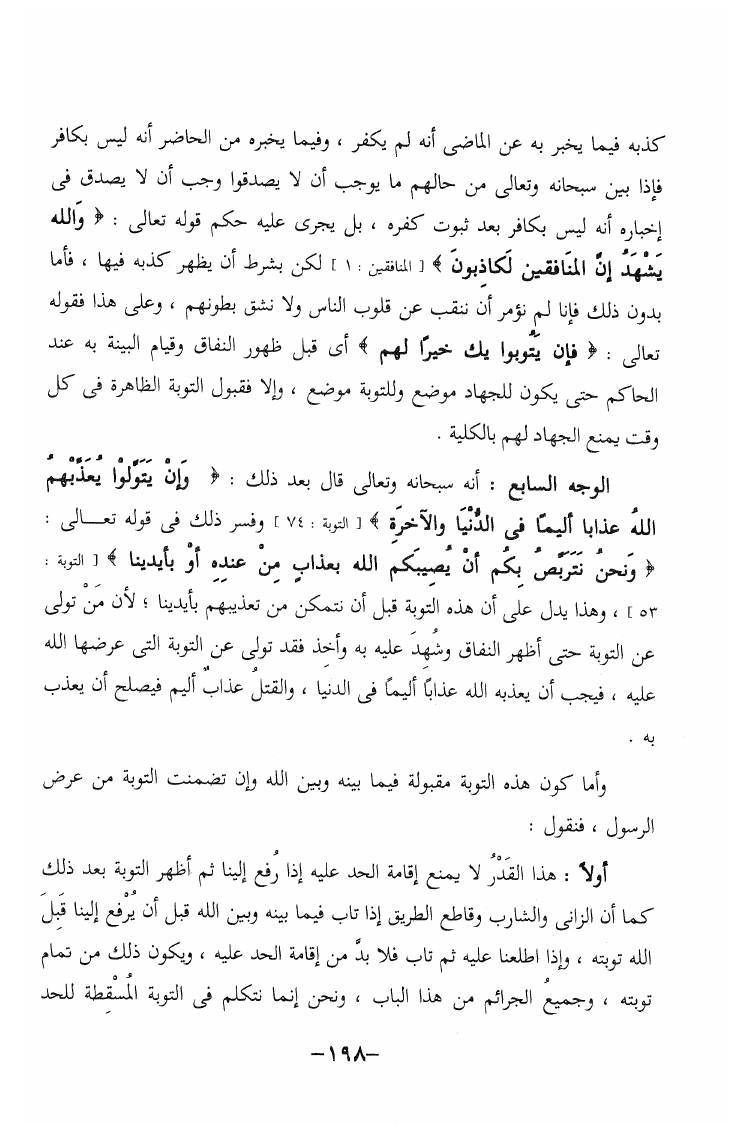 كذبه فيما يخبر به عن الماضى أنه لم يكفر ، وفيما يخبره من الحاضر أنه ليس بكافر
فإذا بين سبحانه وتعالى من حالهم ما يوجب أن لا يصدقوا وجب أن لا يصدق فى
إخباره أنه ليس بكافر بعد ثبوت كفره ، بل يجرى عليه حكم قوله تعالى : ﴿ وَالله
يَشْهَدُ إِنَّ المنَافقين لَكاذِبونَ ﴾ [ المنافقين : ١ ] لكن بشرط أن يظهر كذبه فيها ، فأما
بدون ذلك فإنا لم نؤمر أن ننقب عن قلوب الناس ولا نشق بطونهم ، وعلى هذا فقوله
تعالى : ﴿ فإن يَّتُوبوا يك خيرًا لهم ﴾ أى قبل ظهور النفاق وقيام البينة به عند
الحاكم حتى يكون للجهاد موضع وللتوبة موضع ، وإلا فقبول التوبة الظاهرة فى كل
وقت يمنع الجهاد لهم بالكلية .
الوجه السابع : أنه سبحانه وتعالى قال بعد ذلك : ﴿ وَإِنْ يَتَوَلَّوْا يُعَذِّبْهمُ
اللهُ عذابا أليمًا فى الدُّنْيَا والآخرَةِ ﴾ [ التوبة : ٧٤ ] وفسر ذلك فى قوله تعـــالى :
﴿ وَنحنُ نَتَرَبَّصُ بِكُم أنْ يُصِيبَكم الله بعذابٍ مِنْ عندِهِ أوْ بأيدينا ﴾ [ التوبة :
٥٣ ] ، وهذا يدل على أن هذه التوبة قبل أن نتمكن من تعذيبهم بأيدينا ؛ لأن مَنْ تولى
عن التوبة حتى أظهر النفاق وشُهِدَ عليه به وأُخِذ فقد تولى عن التوبة التى عرضها الله
عليه ، فيجب أن يعذبه الله عذابًا أليمًا فى الدنيا ، والقتلُ عذابٌ أليم فيصلح أن يعذب
به .
وأما كون هذه التوبة مقبولة فيما بينه وبين الله وإن تضمنت التوبة من عرض
الرسول ، فنقول :
أولاً : هذا القَدْرُ لا يمنع إقامة الحد عليه إذا رُفع إلينا ثم أظهر التوبة بعد ذلك
كما أن الزانى والشارب وقاطع الطريق إذا تاب فيما بينه وبين الله قبل أن يُرْفع إلينا قَبِلَ
الله توبته ، وإذا اطلعنا عليه ثم تاب فلا بدَّ من إقامة الحد عليه ، ويكون ذلك من تمام
توبته ، وجميعُ الجرائم من هذا الباب ، ونحن إنما نتكلم فى التوبة المُسْقِطة للحد
–١٩٨–